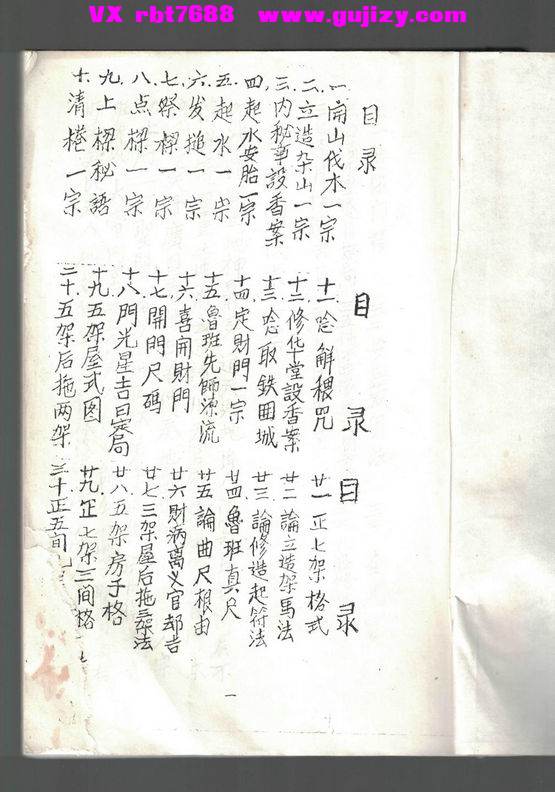 VX rbt7688 www.gujizy.com
目录
一.开山伐木一宗
二.立造杂山一宗
三.内秘章設香案
四.起水安胎一宗
五.起水一宗
六.发搥一宗
七.祭樑一宗
八.点樑一宗
九.上樑秘語
十.清捲一宗
目录
十一.唸解穢咒
十二.修华堂設香案
十三.唸取鉄囬城
十四.定財門一宗
十五.魯班先師源流
十六.喜開財門
十七.開門尺碼
十八.門光星吉日定局
十九.五架屋式图
二十.五架后拖两架
目录
廿一.正七架格式
廿二.論立造架馬法
廿三.論修造起符法
廿四.魯班真尺
廿五.論曲尺根由
廿六.財病离义官却吉
廿七.三架屋后拖三架法
廿八.五架房子格
廿九.正七架三间格
三十.正五旬
一